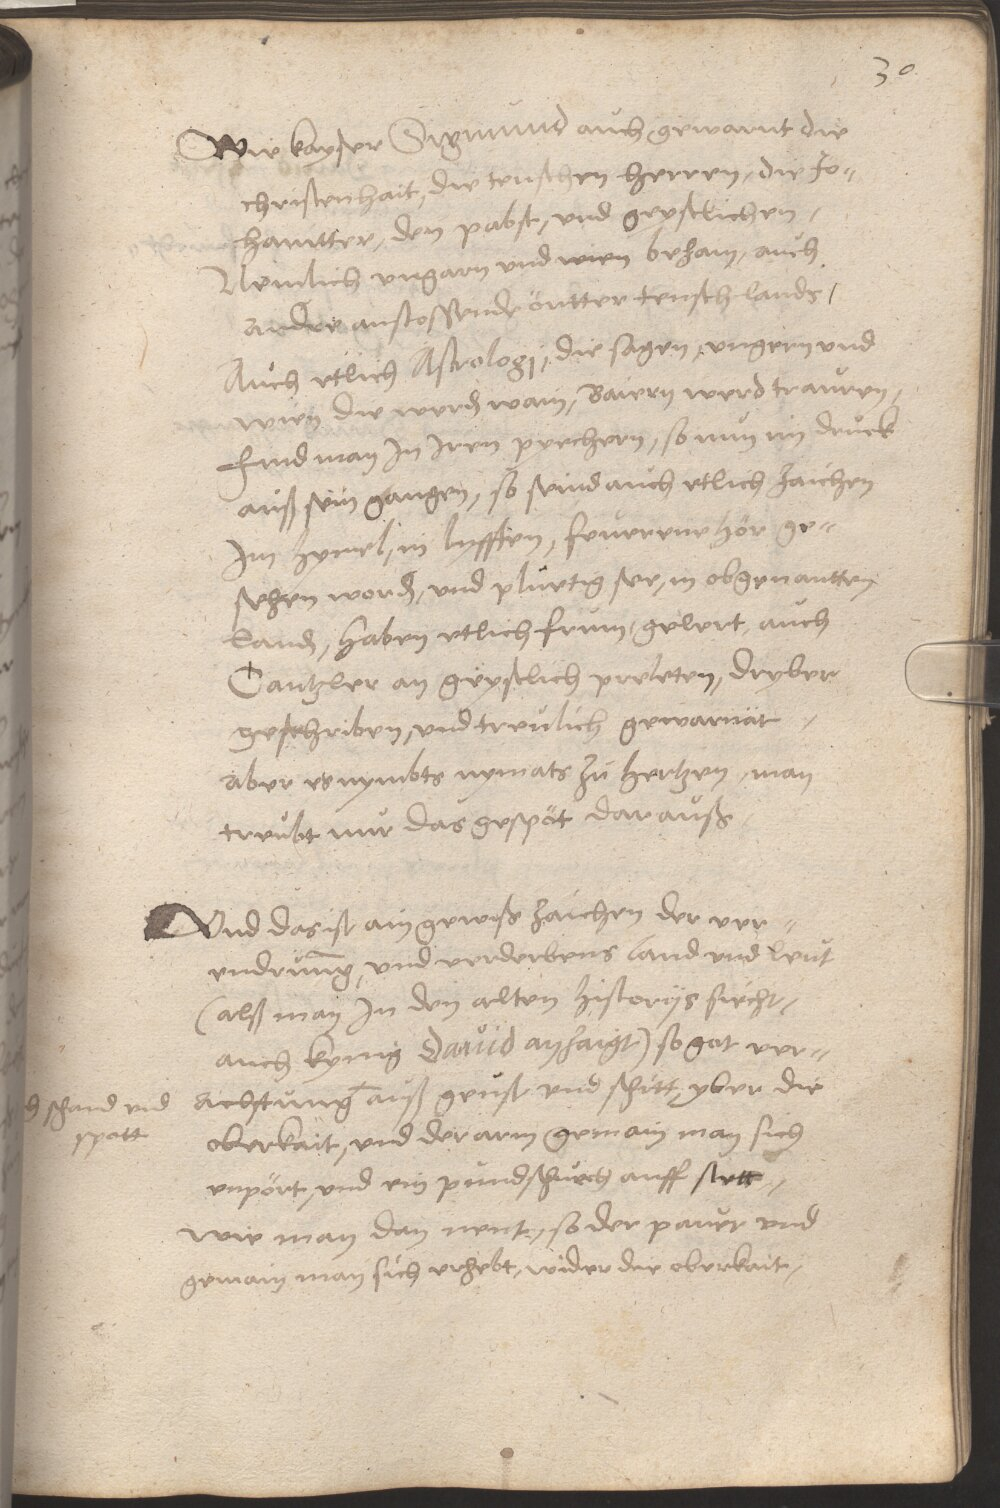 30
Wie kayser Sigmund auch gewarnt die
christenhait, die teuschen herren, die Jo-
hanitter, den pabst, und geystlichen,
Nemlich ungarn und wien beham, auch
andre anstossende öntter teusch lands,
Auch etlich Astrologj, die sagen, ungern und
wien die werden wain, Baiern werd trauren,
find man In Iren pyechern, so nun im druck
auß sein gangen, so seind auch etlich zaichen
Im hymel, in lyfften, feuerene hör ge-
sehen worden, und pluetig ser, in obgenantten
landen, haben etlich frum, gelert, auch
Cantzler an geystlich preleten, dryber
geschriben, und treulich gewarnät
aber es nymbts nymats zu hertzen, man
treubt nur das gespöt dar auß
Und das ist ain gewiß zaichen der ver-
endrung, und verderbens land und leut
(alß man In den alten historijs siecht,
auch kynig David anzaigt) so got ver-
achtung auß geust und schitt, yber die
oberkait, und der arm gemain man sich
enpört, und ein pundschuech auff
wie man dan nent, so der paur und
gemain man sich erhebt, wider die oberkait,
schand und
spott